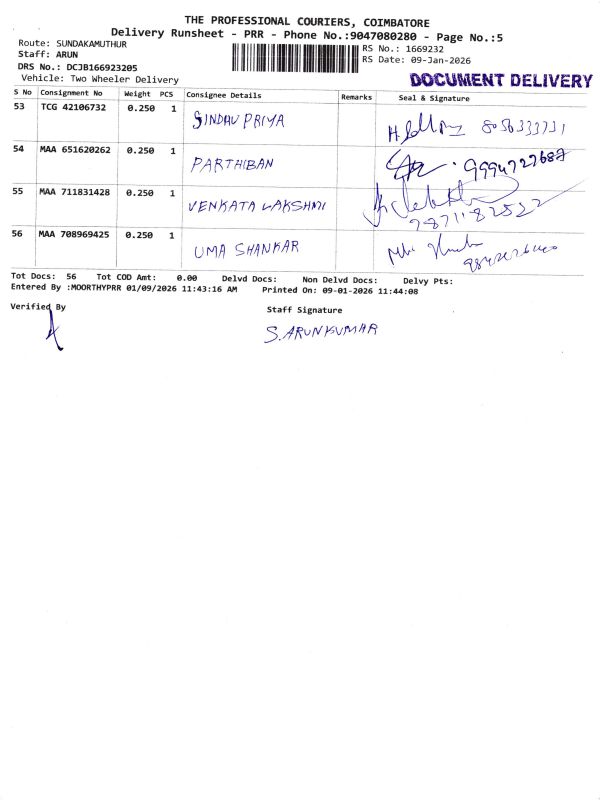 THE PROFESSIONAL COURIERS, COIMBATORE
Delivery Runsheet - PRR - Phone No.:9047080280 - Page No.:5
Route: SUNDAKAMUTHUR
Staff: ARUN
DRS No.: DCJB166923205
Vehicle: Two Wheeler Delivery
RS No.: 1669232
RS Date: 09-Jan-2026
DOCUMENT DELIVERY
S No Consignment No Weight PCS Consignee Details Remarks Seal & Signature
53 TCG 42106732 0.250 1 SINDHU PRIYA 8056333731
54 MAA 651620262 0.250 1 PARTHIBAN 9994727687
55 MAA 711831428 0.250 1 VENKATA LAKSHMI 7871182522
56 MAA 708969425 0.250 1 UMA SHANKAR
Tot Docs: 56 Tot COD Amt: 0.00 Delvd Docs: Non Delvd Docs: Delvy Pts:
Entered By :MOORTHYPRR 01/09/2026 11:43:16 AM Printed On: 09-01-2026 11:44:08
Verified By
Staff Signature
S. ARUNKUMAR